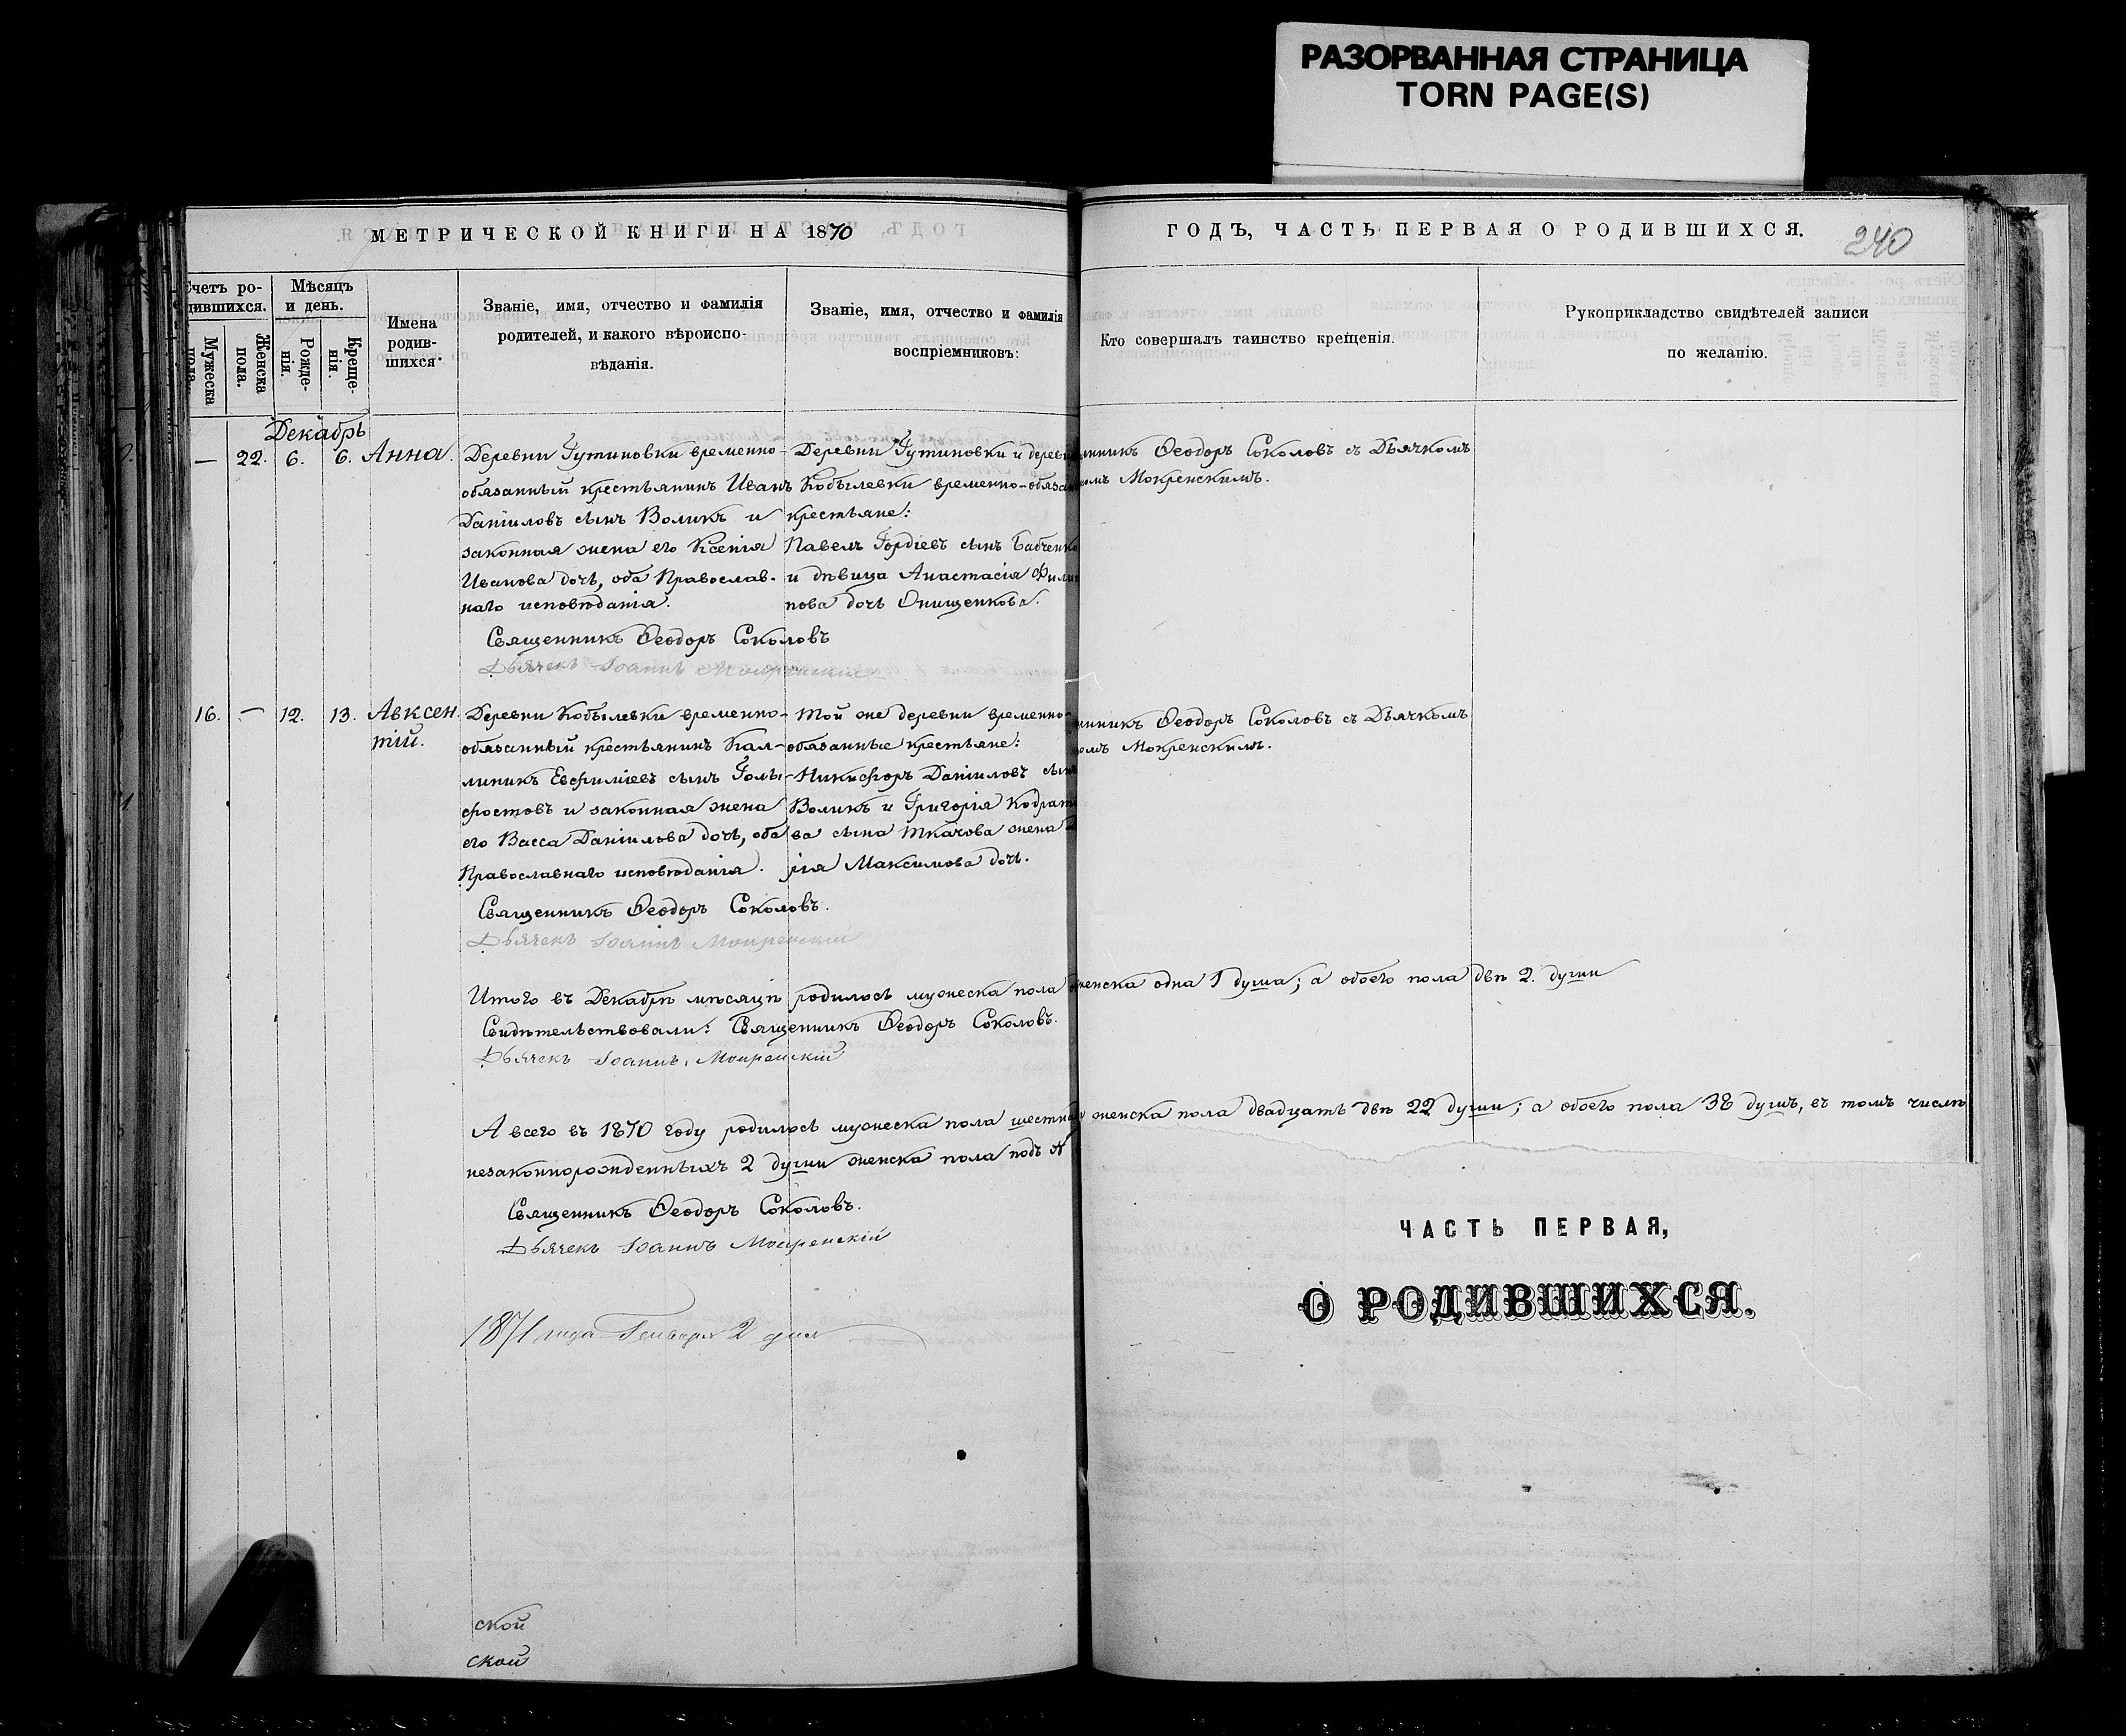 РАЗОРВАННАЯ СТРАНИЦА
TORN PAGE(S)
МЕТРИЧЕСКОЙ КНИГИ НА 1870
ГОДЪ, ЧАСТЬ ПЕРВАЯ О РОДИВШИХСЯ.
240
Счетъ ро-
дившихся.
Мужеска
пола.
Женска
пола.
Мѣсяцъ
и день.
Рожде-
нія.
Креще-
нія.
Имена
родив-
шихся.
Званіе, имя, отчество и фамилія
родителей, и какого вѣроиспо-
вѣданія.
Званіе, имя, отчество и фамилія
воспріемниковъ:
Кто совершалъ таинство крещенія.
Рукоприкладство свидѣтелей записи
по желанію.
Декабрь
— 22. 6. 6. Анна.
Деревни Гутиновки временно-
обязанный крестьянинъ Иванъ
Даніиловъ сынъ Воликъ и
законная жена его Ксенія
Иванова дочь, оба Православ-
наго исповѣданія.
Деревни Гутиновки и дерев
Кобылевки временно-обяза
крестьяне:
Павелъ Гордіевъ сынъ Бабченко
и дѣвица Анастасія Фили
пова дочь Онищенкова.
нникъ Ѳеодоръ Соколовъ съ Дьячкомъ
омъ Мокренскимъ.
Священникъ Ѳеодоръ Соколовъ
Дьячекъ Іоаннъ Мокренскій
16. — 12. 13. Авксен
тій.
Деревни Кобылевки временно-
обязанный крестьянинъ Кал-
линикъ Евфиміевъ сынъ Голы-
фостовъ и законная жена
его Васса Даніилова дочь, оба
Православнаго исповѣданія.
Той же деревни временно-
обязанные крестьяне:
Никифоръ Даніиловъ сынъ
Воликъ и Григорія Кодрат
ва сына Ткачова жена
рія Максимова дочь.
нникъ Ѳеодоръ Соколовъ съ Дьячкомъ
омъ Мокренскимъ.
Священникъ Ѳеодоръ Соколовъ.
Дьячекъ Іоаннъ Мокренскій
Итого въ Декабрѣ мѣсяцѣ родилось мужеска пола женска одна 1 душа; а обоего пола двѣ 2. души
Свидѣтельствовали: Священникъ Ѳеодоръ Соколовъ.
Дьячекъ Іоаннъ Мокренскій
А всего въ 1870 году родилось мужеска пола шестна женска пола двадцать двѣ 22 души; а обоего пола 38 душъ, въ томъ числѣ
незаконнорожденныхъ 2 души женска пола подъ №
Священникъ Ѳеодоръ Соколовъ.
Дьячекъ Іоаннъ Мокренскій
1871 года Генваря 2 дня
ской
ской
ЧАСТЬ ПЕРВАЯ,
О РОДИВШИХСЯ.